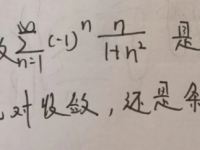 $\sum_{n=1}^{\infty} (-1)^n \frac{n}{1+n^2}$ 是
对收敛,还是条